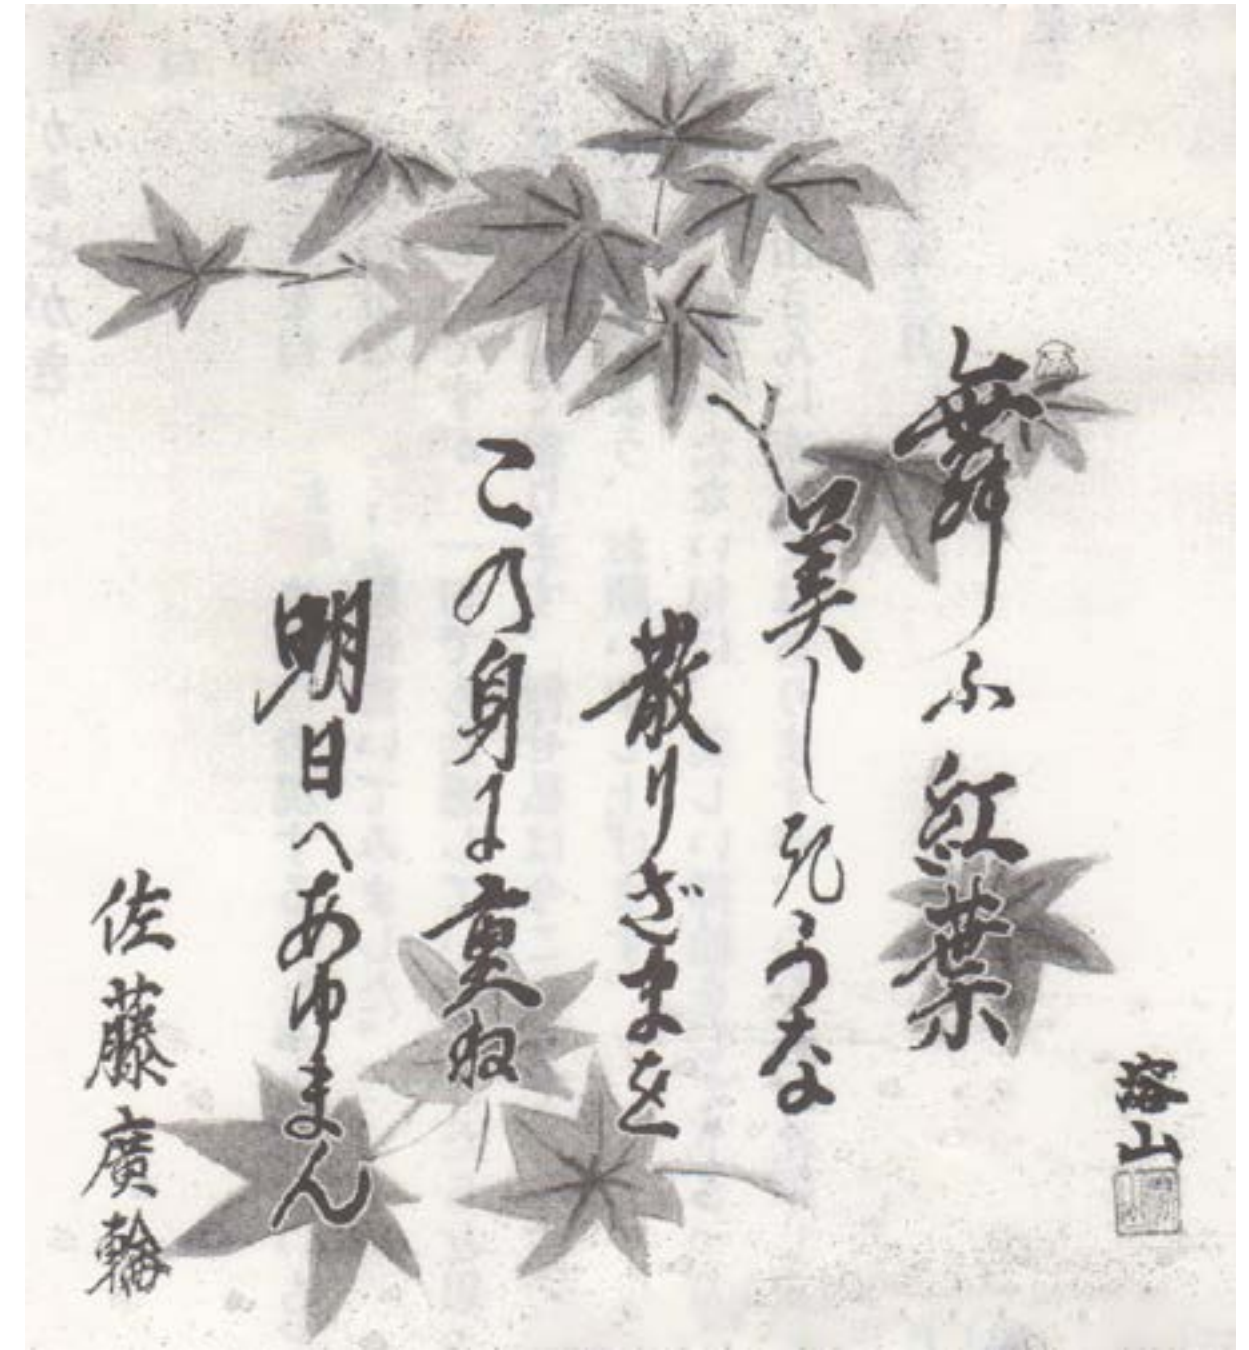 舞ふ紅葉
美しきかな
散りざまを
この身に重ね
明日へあゆまん
佐藤廣輪
溶山